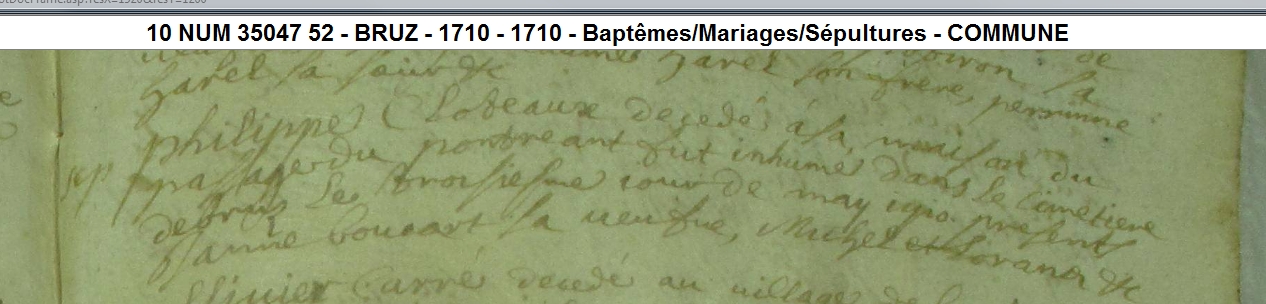 10 NUM 35047 52 - BRUZ - 1710 - 1710 - Baptêmes/Mariages/Sépultures - COMMUNE
de
harel son frere, perrinne
harel sa seur &c
philippe Cloteaux decedé a sa maison du
sep
passage du pontreant fut inhumé dans le Cimetiere
de bruz le troisiesme iour de may 1710 present
Janne bouaart sa veufve, Michel et Lorand &c
Ollivier Carré decedé au village de